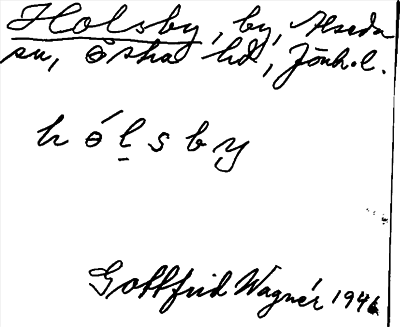 Holsby, by, Alseda
sn, Östra hd, Jönk. l.
hólsby
Gottfrid Wagnér 1946